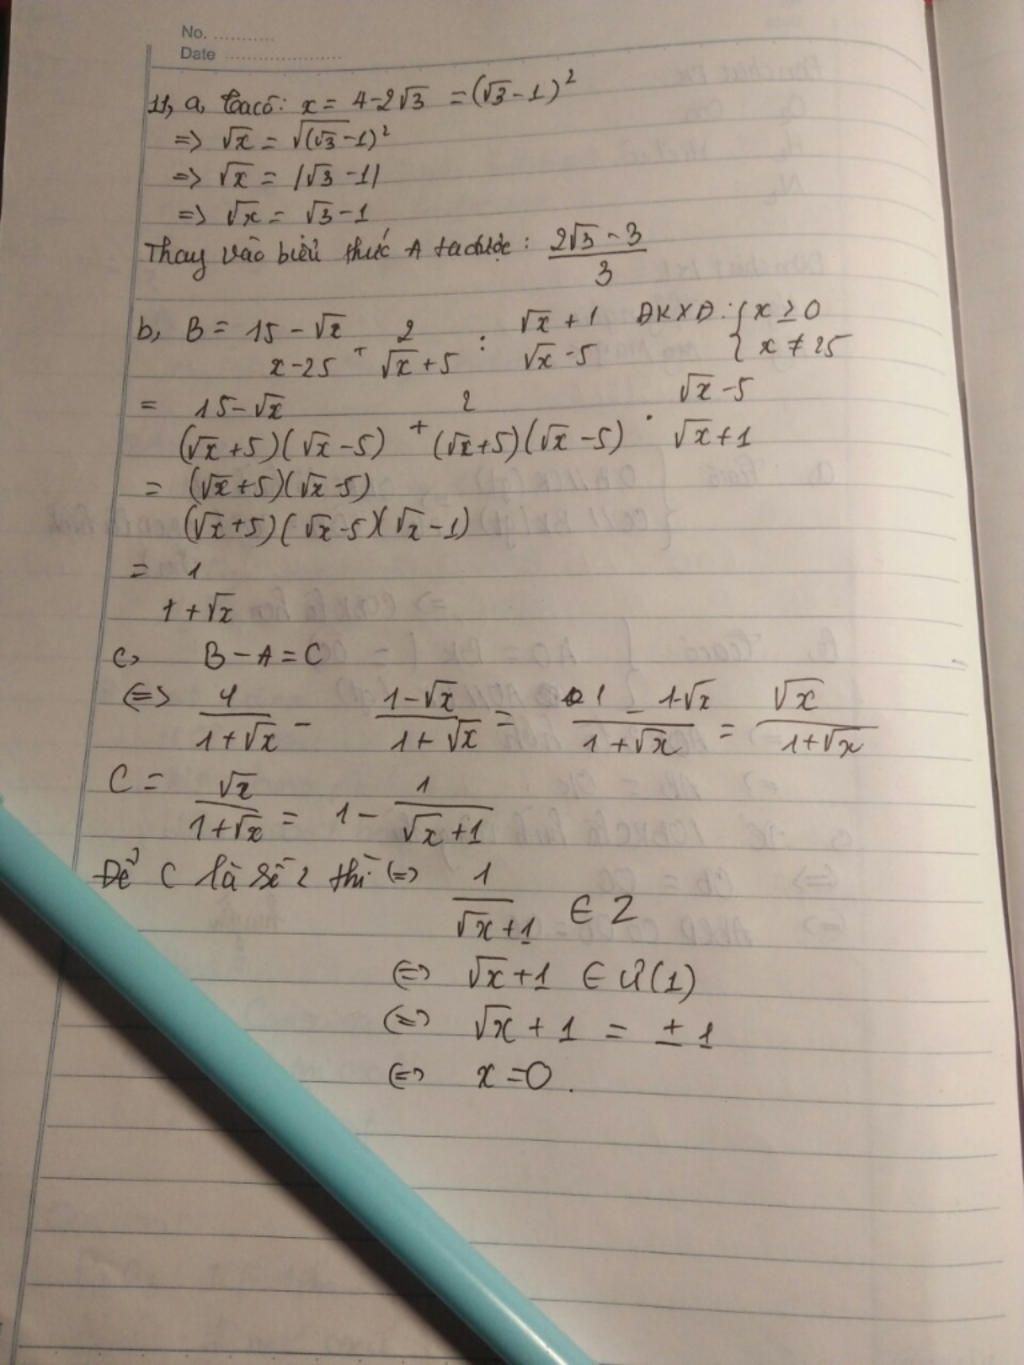 No. ...........
Date .....................
11, a, Ta có: x = 4-2√3 = (√3-1)²
=> √x = √(√3-1)²
=> √x = |√3-1|
=> √x = √3-1
Thay vào biểu thức A ta được: (2√3-3)/3
b, B = 15-√x 2 √x+1 ĐKXĐ: { x ≥ 0
x-25 + √x+5 : √x-5 { x ≠ 25
= 15-√x 2 √x-5
(√x+5)(√x-5) + (√x+5)(√x-5) . √x+1
= (√x+5)(√x-5)
(√x+5)(√x-5)(√x-1)
= 1
1+√x
c, B-A=C
<=> 1/(1+√x) - (1-√x)/(1+√x) = (1-1√x)/(1+√x) = √x/(1+√x)
C = √x/(1+√x) = 1 - 1/(√x+1)
Để C là số Z thì <=> 1/(√x+1) ∈ Z
<=> √x+1 ∈ Ư(1)
<=> √x+1 = ±1
<=> x=0.